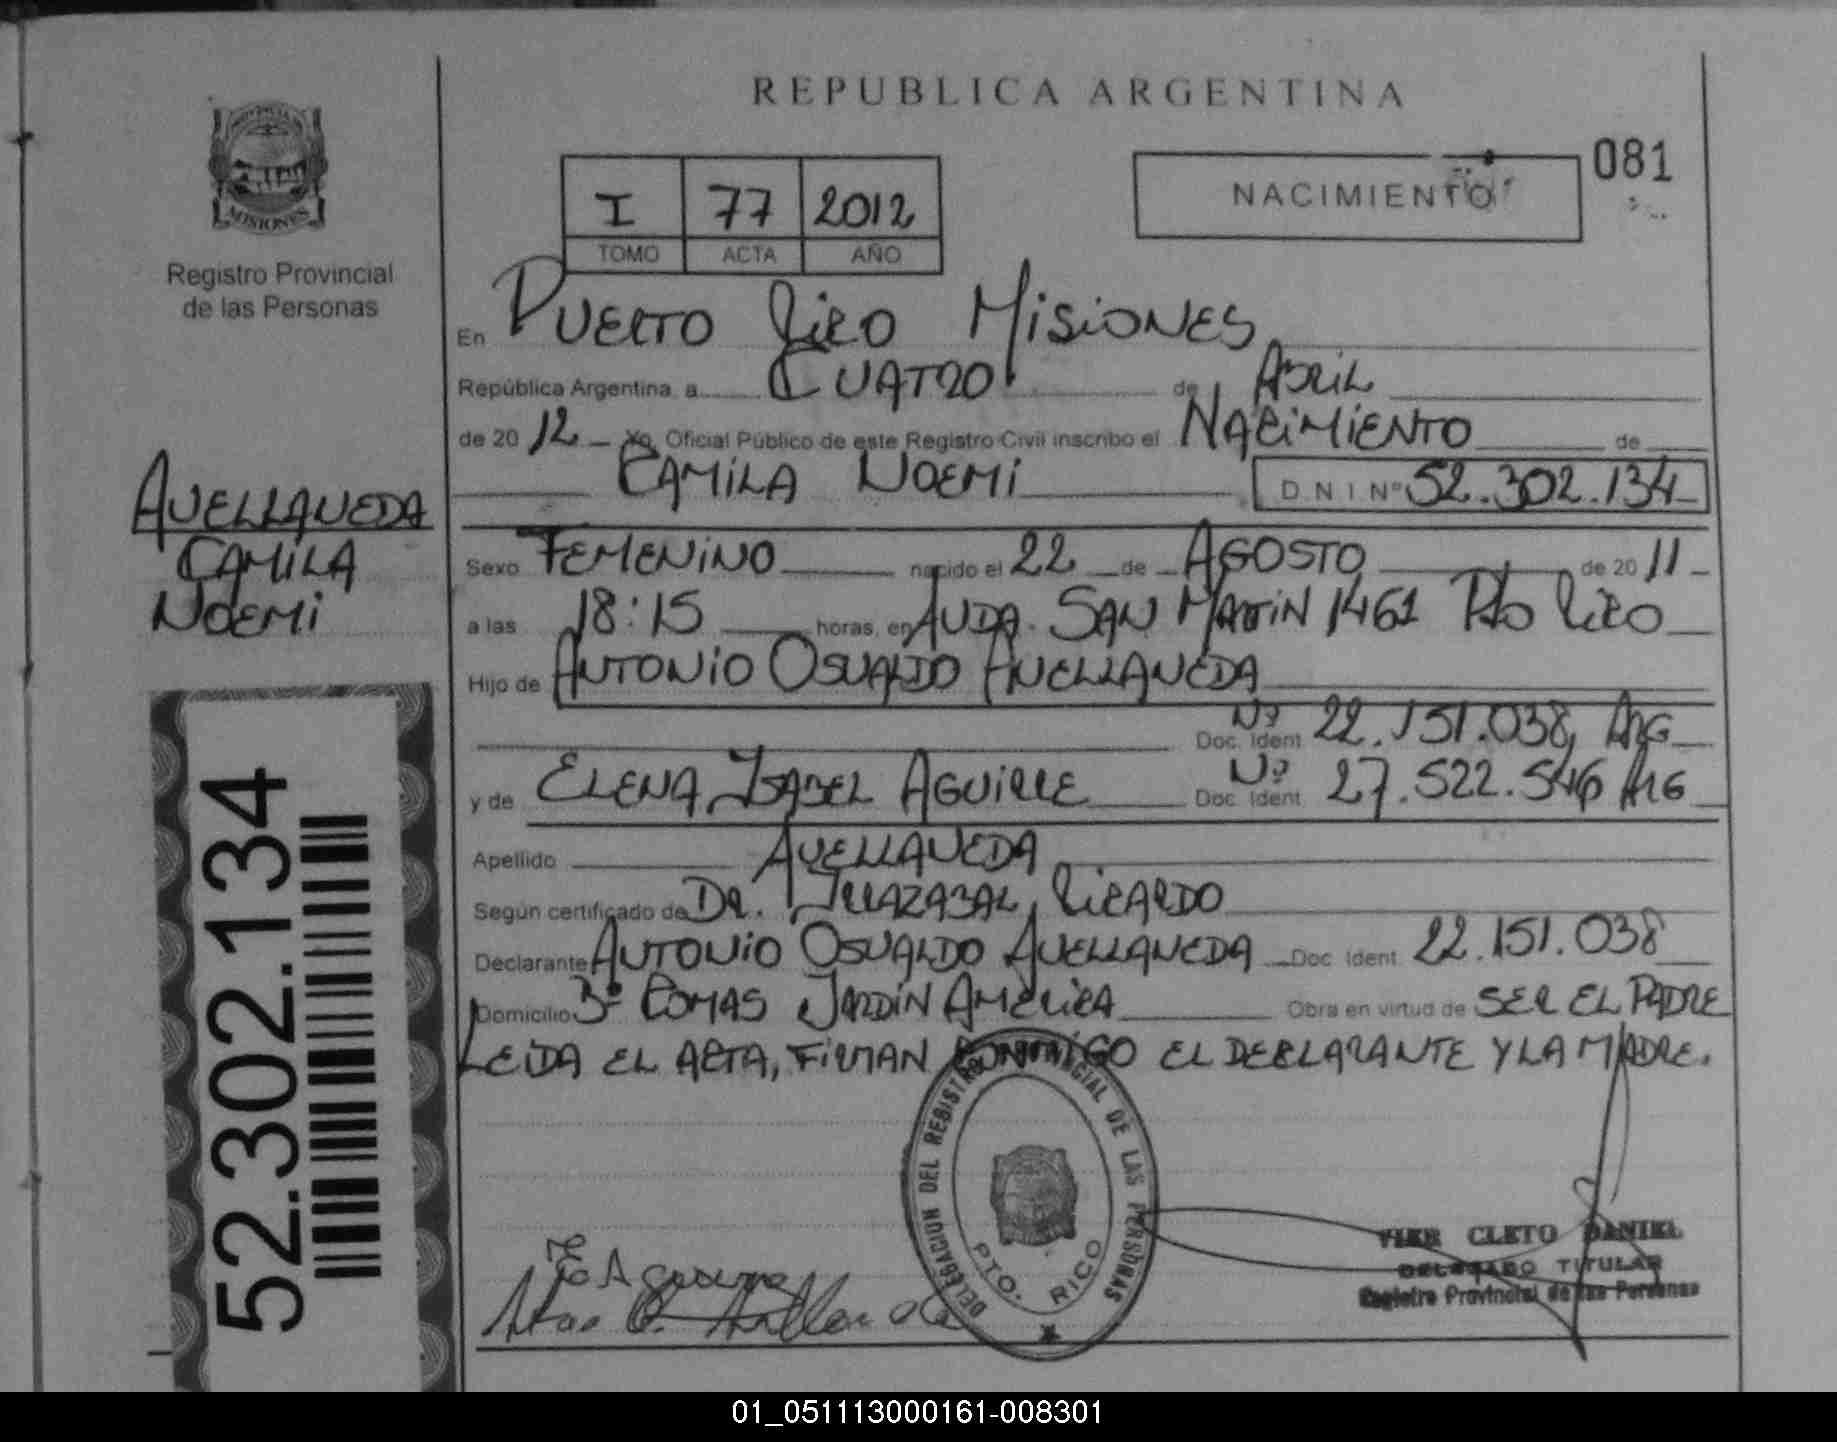 REPUBLICA ARGENTINA
PROVINCIA DE
MISIONES
Registro Provincial
de las Personas
I 77 2012
TOMO ACTA AÑO
NACIMIENTO
081
En PUERTO RICO MISIONES
República Argentina, a CUATRO de ABRIL
de 2012 Yo, Oficial Público de este Registro Civil inscribo el NACIMIENTO de
CAMILA NOEMI D N I Nº 52.302.134
AVELLANEDA
CAMILA
NOEMI
Sexo FEMENINO nacido el 22 de AGOSTO de 2011
a las 18:15 horas, en AVDA. SAN MARTIN 1461 Pto RICO
Hijo de ANTONIO OSVALDO AVELLANEDA
Nº
Doc. Ident. 22.151.038, ARG
y de ELENA ISABEL AGUIRRE Nº Doc. Ident. 27.522.546 ARG
Apellido AVELLANEDA
Según certificado de DR. IRRAZABAL, RICARDO
Declarante ANTONIO OSVALDO AVELLANEDA Doc. Ident. 22.151.038
Domicilio 3º LOMAS JARDÍN AMÉRICA Obra en virtud de SER EL PADRE
LEIDA EL ACTA, FIRMAN CONMIGO EL DECLARANTE Y LA MADRE.
52.302.134
DELEGACION DEL REGISTRO PROVINCIAL DE LAS PERSONAS
PTO. RICO
VIER CLETO DANIEL
DELEGADO TITULAR
Registro Provincial de las Personas
01_051113000161-008301